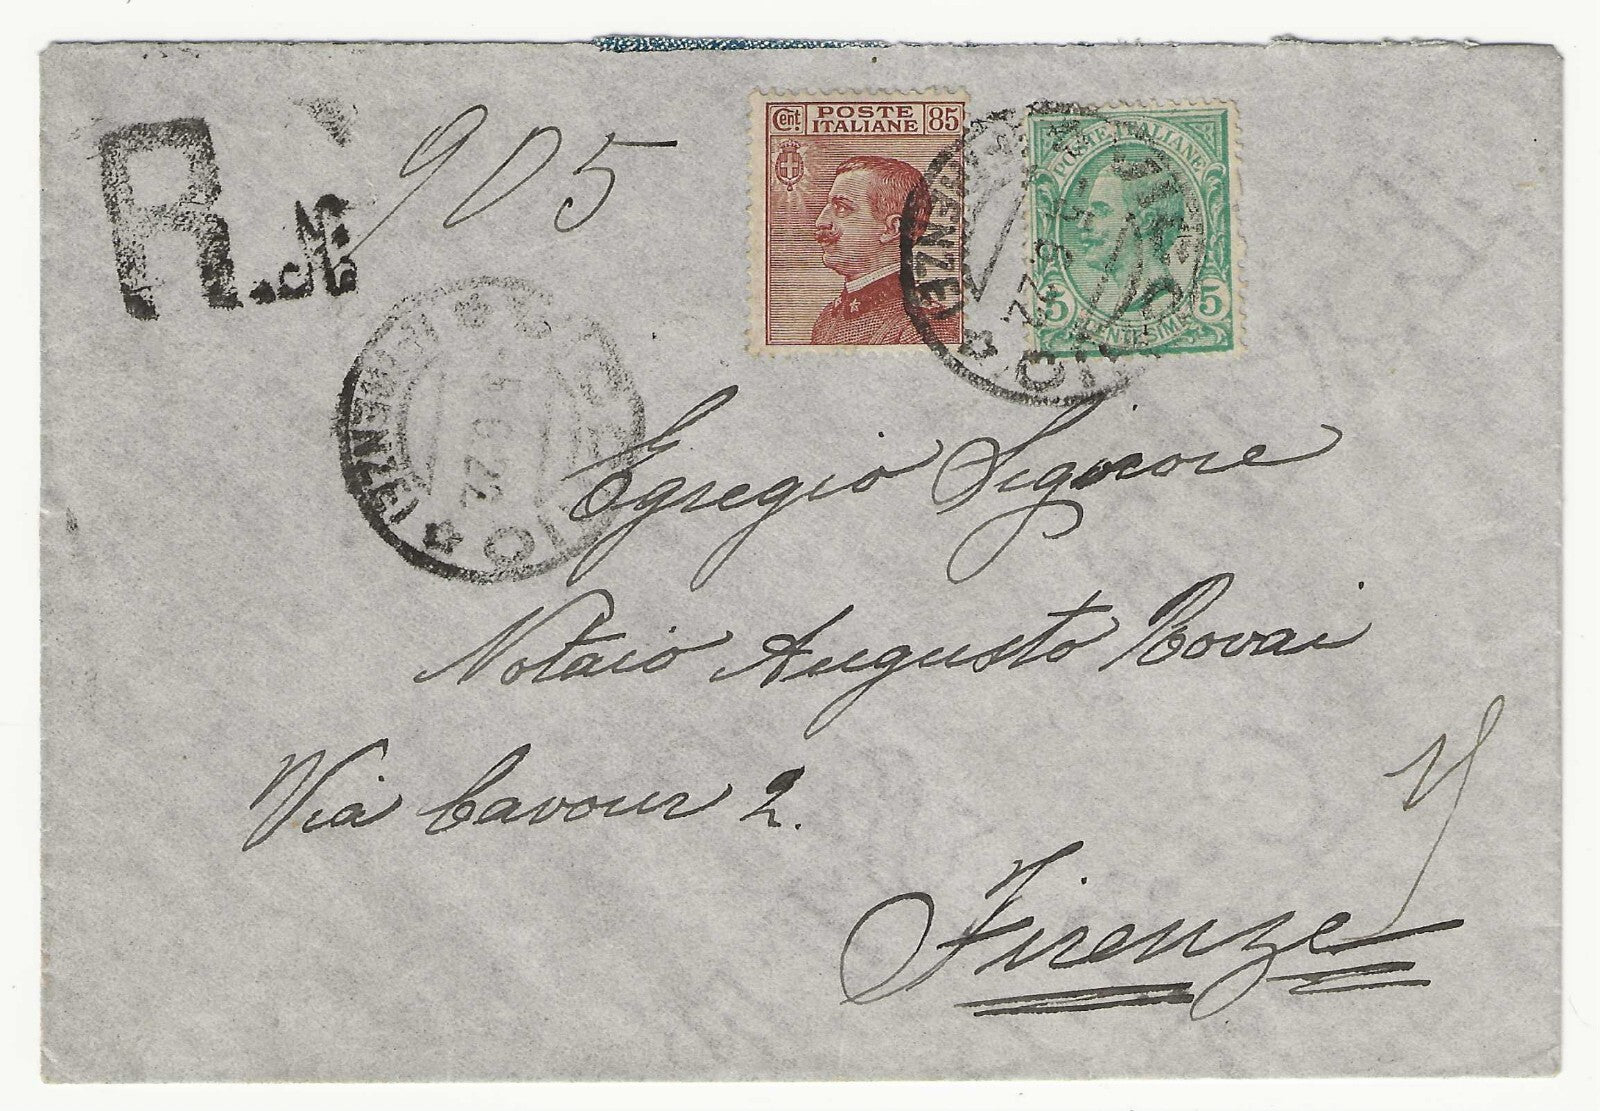 R.
905
Cent. POSTE ITALIANE 85
POSTE ITALIANE
5 CENTESIMI 5
(FIRENZE)
6 22
(FIRENZE)
6 22
Egregio Signore
Notaio Augusto Rovai
Via Cavour 2.
Firenze